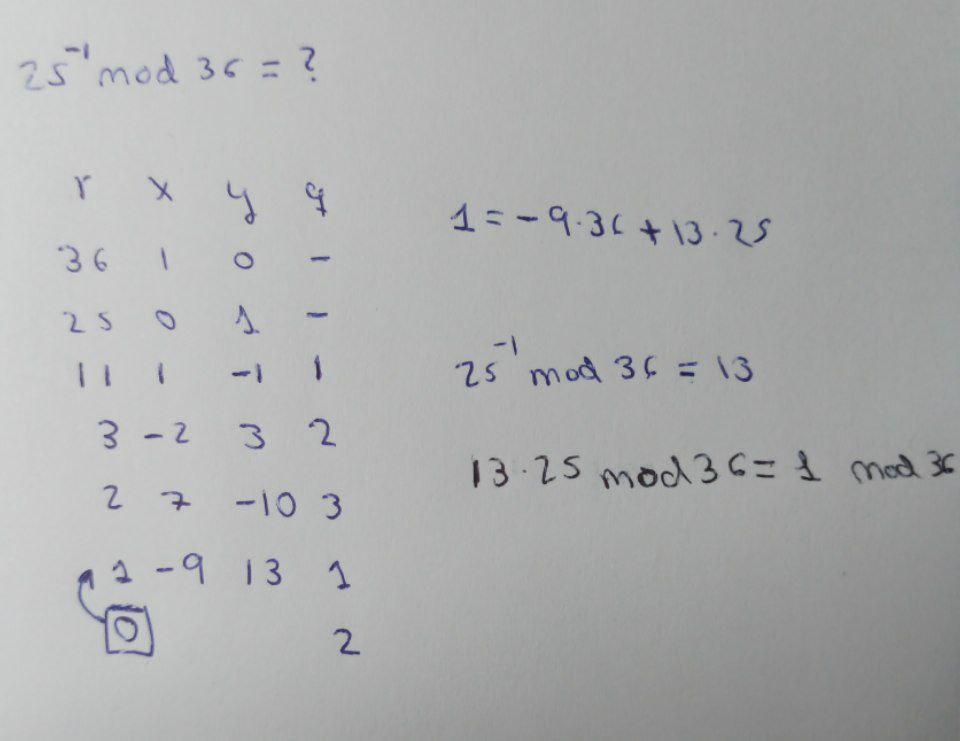 25⁻¹ mod 36 = ?
r x y q
36 1 0 -
25 0 1 -
11 1 -1 1
3 -2 3 2
2 7 -10 3
1 -9 13 1
0 2
1 = -9·36 + 13·25
25⁻¹ mod 36 = 13
13·25 mod 36 = 1 mod 36